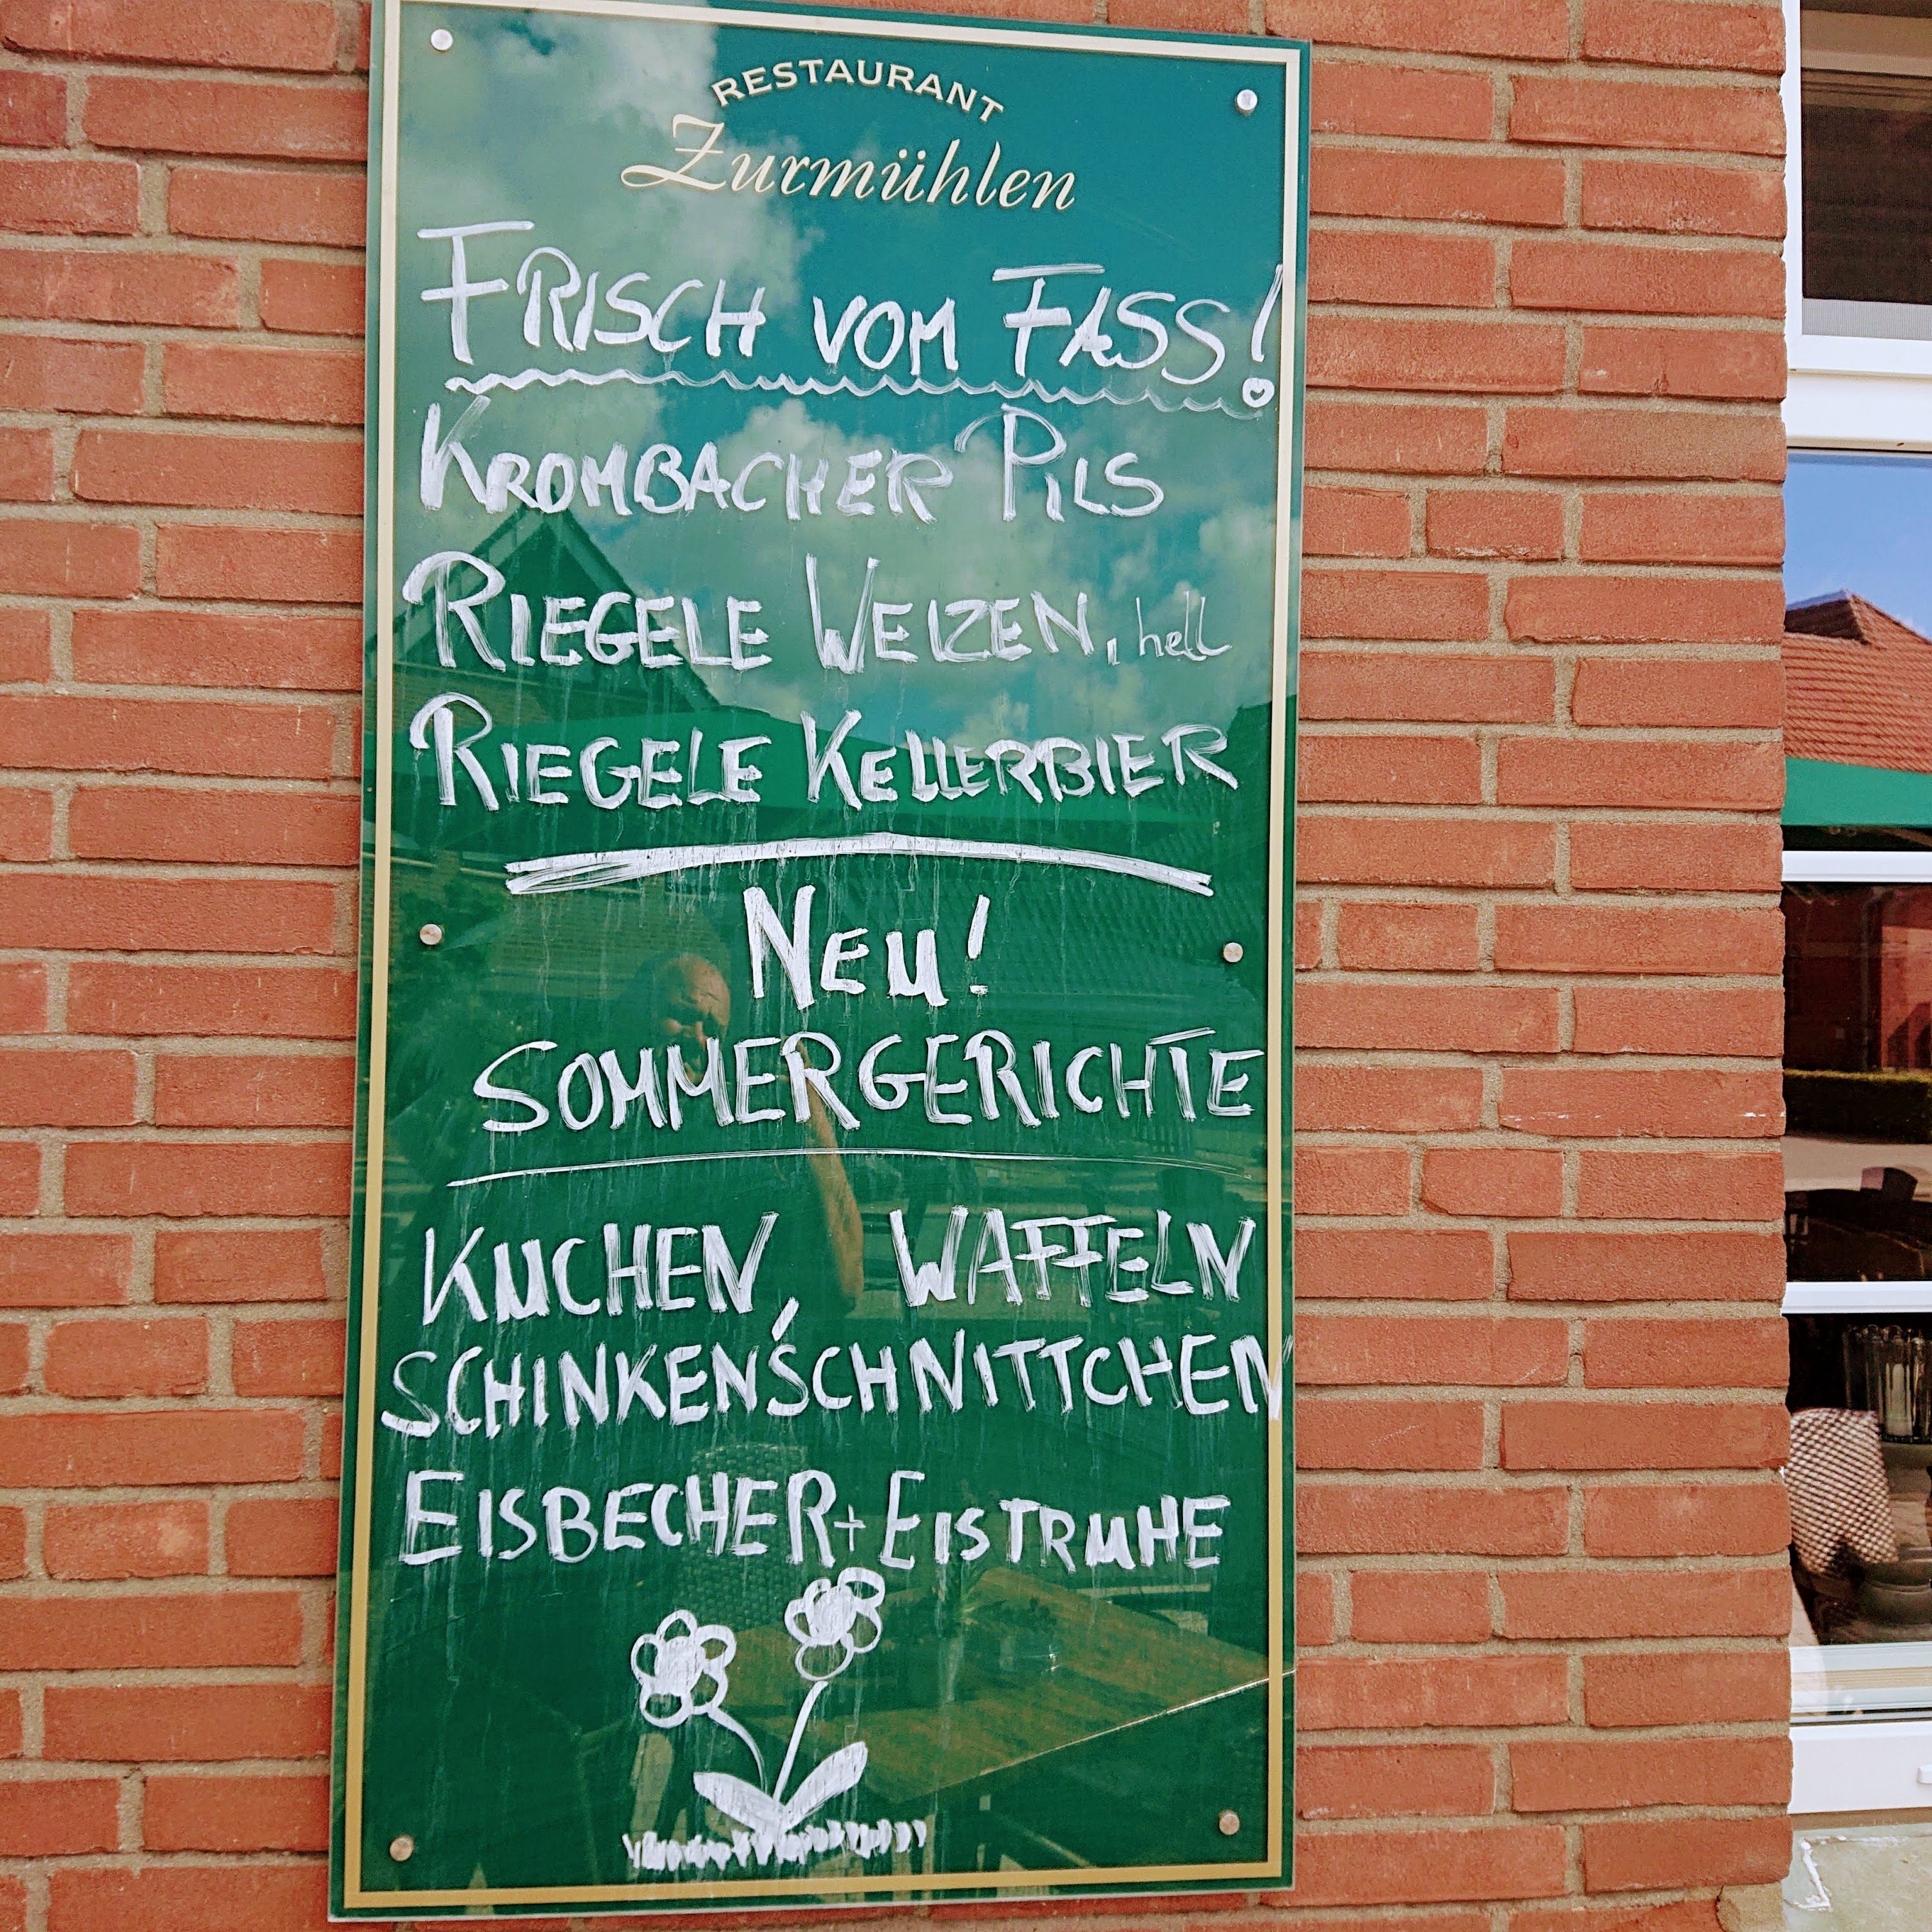 RESTAURANT
Zurmühlen
FRISCH VOM FASS!
KROMBACHER PILS
RIEGELE WEIZEN, hell
RIEGELE KELLERBIER
NEU!
SOMMERGERICHTE
KUCHEN, WAFFELN
SCHINKENSCHNITTCHEN
EISBECHER + EISTRUHE